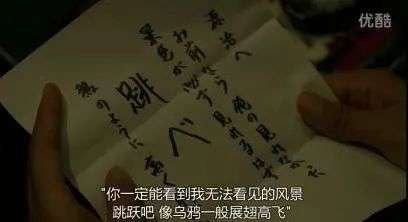 优酷
源治へ
俺の見れなかった
景色が
お前なら
必ず
見れるはず
跳べ
鴉のように
高く
"你一定能看到我无法看见的风景
跳跃吧 像乌鸦一般展翅高飞"